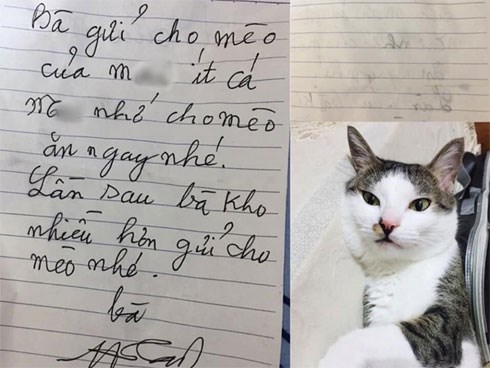 Bà gửi cho mèo
của m ít cá
m nhớ cho mèo
ăn ngay nhé.
Lần sau bà kho
nhiều hơn gửi cho
mèo nhé.
bà